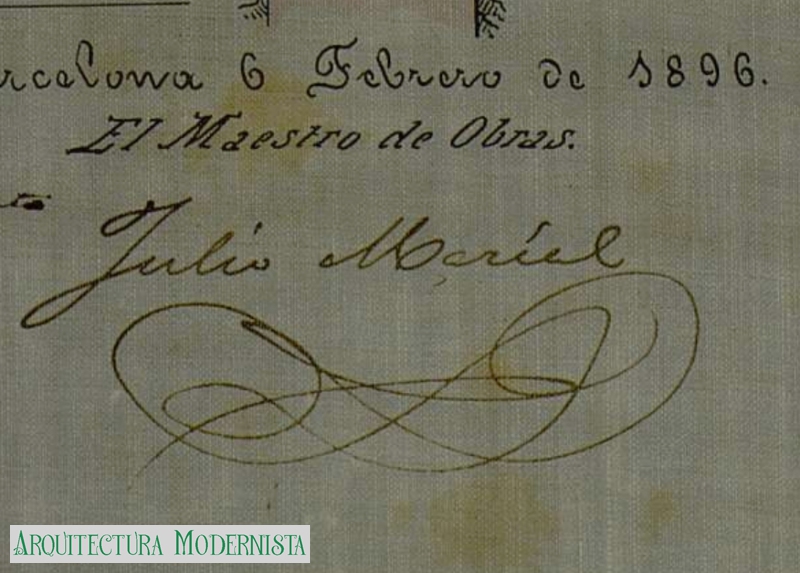 rcelona 6 Febrero de 1896.
El Maestro de Obras.
Julio Marial
Arquitectura Modernista